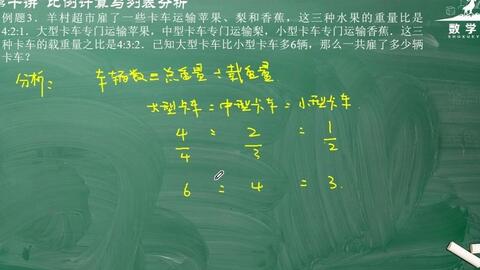 第十讲 比例计算与列表分析
数学
SHUXUEY
例题3．羊村超市雇了一些卡车运输苹果、梨和香蕉，这三种水果的重量比是
4:2:1．大型卡车专门运输苹果，中型卡车专门运输梨，小型卡车专门运输香蕉．这三
种卡车的载重量之比是4:3:2．已知大型卡车比小型卡车多6辆，那么一共雇了多少辆
卡车？
分析：
车辆数=总重量÷载重量
大型卡车:中型卡车:小型卡车
4/4 : 2/3 : 1/2
6 : 4 : 3.